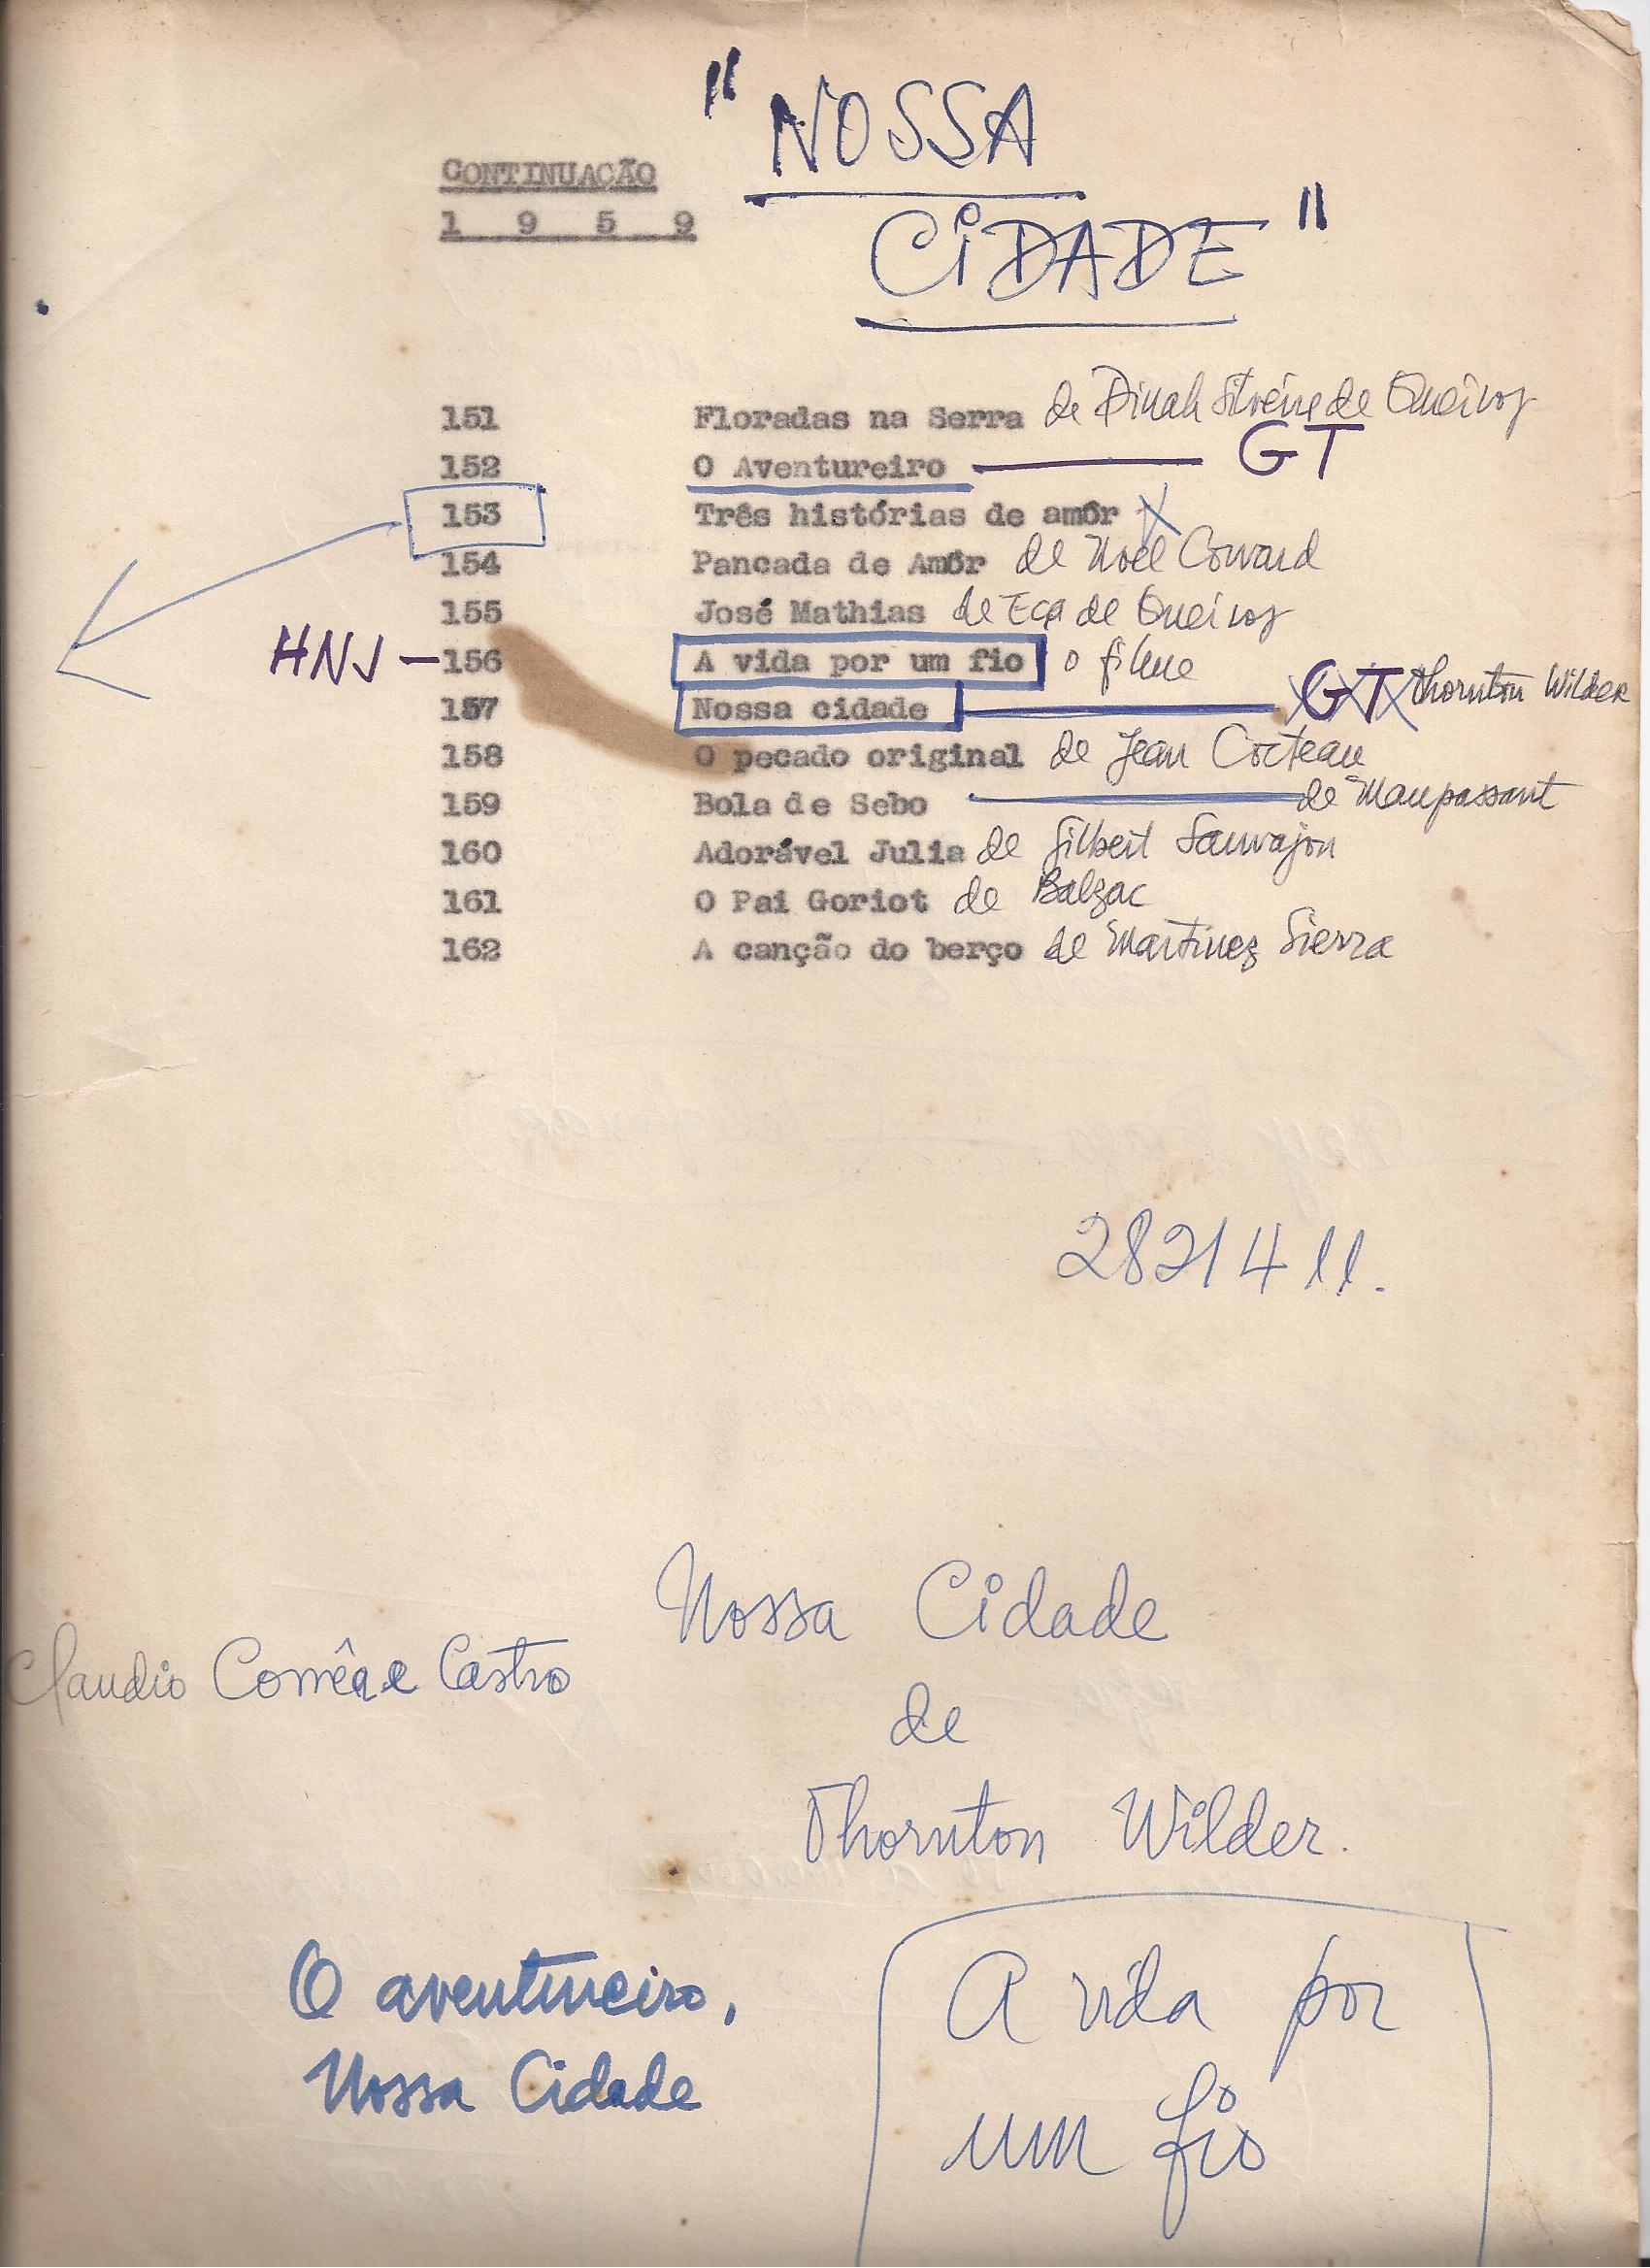 "NOSSA
CIDADE"
CONTINUAÇÃO
1 9 5 9
151 Floradas na Serra de Dinah Silveira de Queiroz
152 O Aventureiro GT
153 Três histórias de amôr X
154 Pancada de Amôr de Noel Coward
155 José Mathias de Eça de Queiroz
HNJ - 156 A vida por um fio o filme
157 Nossa cidade GT Thornton Wilder
158 O pecado original de Jean Cocteau
159 Bola de Sebo de Maupassant
160 Adorável Julia de Gilbert Sauvajon
161 O Pai Goriot de Balzac
162 A canção do berço de Martinez Sierra
2821411.
Nossa Cidade
Claudio Corrêa e Castro
de
Thornton Wilder.
O aventureiro,
Nossa Cidade
A vida por
um fio